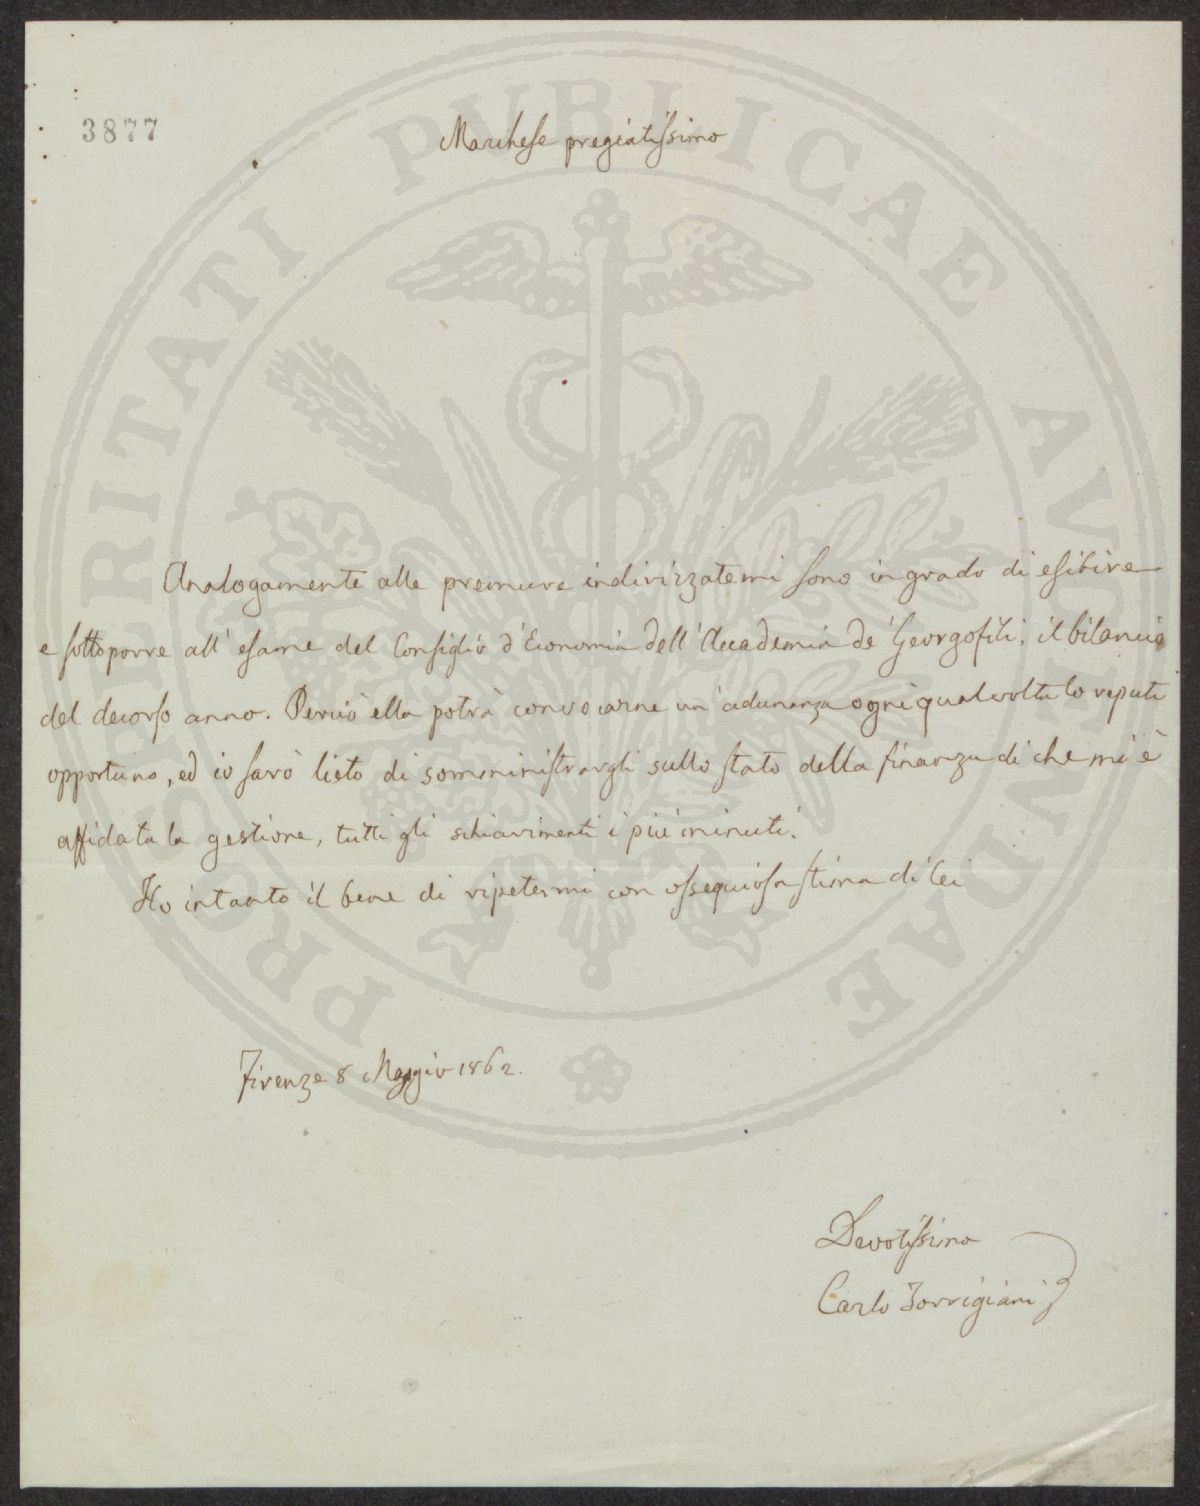 3877
Marchese pregiatissimo
Analogamente alle premure indirizzatemi sono in grado di esibire
e sottoporre all' esame del Consiglio d' Economia dell' Accademia de' Georgofili, il bilancio
del decorso anno. Perciò ella potrà convocarne un' adunanza ogni qual volta lo reputi
opportuno, ed io sarò lieto di somministrargli sullo stato della finanza di che mi è
affidata la gestione, tutti gli schiarimenti i più minuti.
Ho intanto il bene di ripetermi con ossequiosa stima di lei
Firenze 8 Maggio 1862.
Devotissimo
Carlo Torrigiani
PROSPERITATI PUBLICAE AVGENDAE